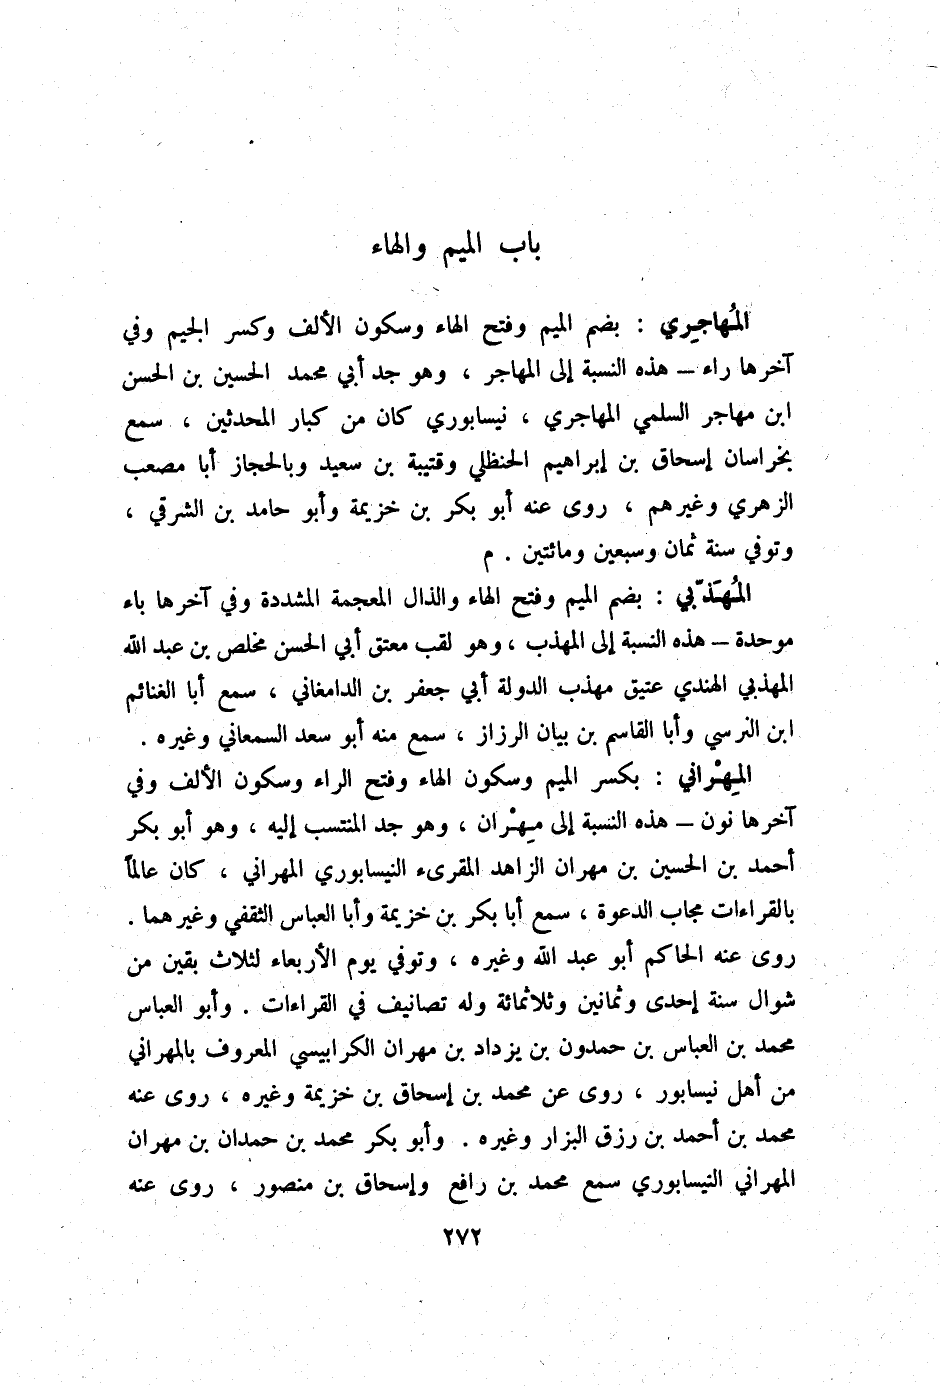 باب الميم والهاء
المُهاجِري : بضم الميم وفتح الهاء وسكون الألف وكسر الجيم وفي
آخرها راء – هذه النسبة إلى المهاجر ، وهو جد أبي محمد الحسين بن الحسن
ابن مهاجر السلمي المهاجري ، نيسابوري كان من كبار المحدثين ، سمع
بخراسان إسحاق بن إبراهيم الحنظلي وقتيبة بن سعيد وبالحجاز أبا مصعب
الزهري وغيرهم ، روى عنه أبو بكر بن خزيمة وأبو حامد بن الشرقي ،
وتوفي سنة ثمان وسبعين ومائتين . م
المُهَذّبي : بضم الميم وفتح الهاء والذال المعجمة المشددة وفي آخرها باء
موحدة – هذه النسبة إلى المهذب ، وهو لقب معتق أبي الحسن مخلص بن عبد الله
المهذبي الهندي عتيق مهذب الدولة أبي جعفر بن الدامغاني ، سمع أبا الغنائم
ابن النرسي وأبا القاسم بن بيان الرزاز ، سمع منه أبو سعد السمعاني وغيره .
المِهْراني : بكسر الميم وسكون الهاء وفتح الراء وسكون الألف وفي
آخرها نون – هذه النسبة إلى مِهْران ، وهو جد المنتسب إليه ، وهو أبو بكر
أحمد بن الحسين بن مهران الزاهد المقرىء النيسابوري المهراني ، كان عالماً
بالقراءات مجاب الدعوة ، سمع أبا بكر بن خزيمة وأبا العباس الثقفي وغيرهما .
روى عنه الحاكم أبو عبد الله وغيره ، وتوفي يوم الأربعاء لثلاث بقين من
شوال سنة إحدى وثمانين وثلاثمائة وله تصانيف في القراءات . وأبو العباس
محمد بن العباس بن حمدون بن يزداد بن مهران الكرابيسي المعروف بالمهراني
من أهل نيسابور ، روى عن محمد بن إسحاق بن خزيمة وغيره ، روى عنه
محمد بن أحمد بن رزق البزار وغيره . وأبو بكر محمد بن حمدان بن مهران
المهراني النيسابوري سمع محمد بن رافع وإسحاق بن منصور ، روى عنه
٢٧٢